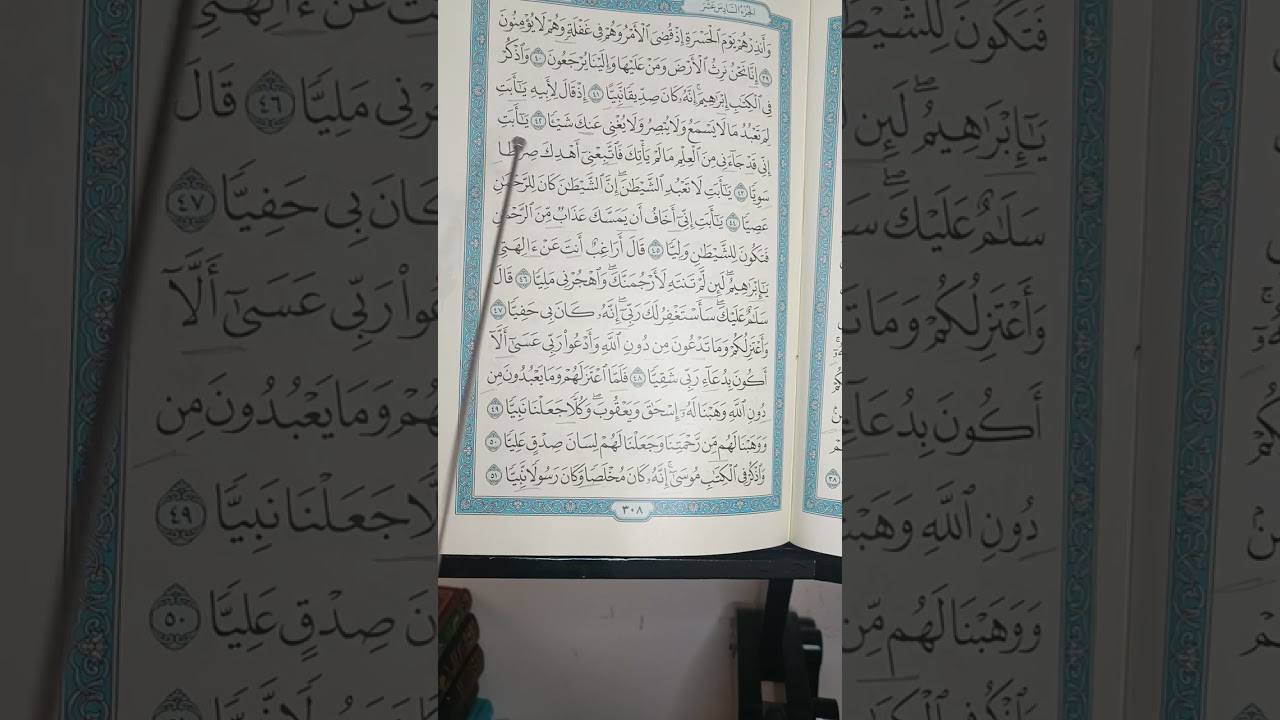 الجزء السادس عشر
وَأَنذِرْهُمْ يَوْمَ ٱلْحَسْرَةِ إِذْ قُضِىَ ٱلْأَمْرُ وَهُمْ فِى غَفْلَةٍ وَهُمْ لَا يُؤْمِنُونَ
٣٩ إِنَّا نَحْنُ نَرِثُ ٱلْأَرْضَ وَمَنْ عَلَيْهَا وَإِلَيْنَا يُرْجَعُونَ ٤٠ وَٱذْكُرْ
فِى ٱلْكِتَٰبِ إِبْرَٰهِيمَ ۚ إِنَّهُۥ كَانَ صِدِّيقًا نَّبِيًّا ٤١ إِذْ قَالَ لِأَبِيهِ يَٰٓأَبَتِ
لِمَ تَعْبُدُ مَا لَا يَسْمَعُ وَلَا يُبْصِرُ وَلَا يُغْنِى عَنكَ شَيْـًٔا ٤٢ يَٰٓأَبَتِ
إِنِّى قَدْ جَآءَنِى مِنَ ٱلْعِلْمِ مَا لَمْ يَأْتِكَ فَٱتَّبِعْنِىٓ أَهْدِكَ صِرَٰطًا
سَوِيًّا ٤٣ يَٰٓأَبَتِ لَا تَعْبُدِ ٱلشَّيْطَٰنَ ۖ إِنَّ ٱلشَّيْطَٰنَ كَانَ لِلرَّحْمَٰنِ
عَصِيًّا ٤٤ يَٰٓأَبَتِ إِنِّىٓ أَخَافُ أَن يَمَسَّكَ عَذَابٌ مِّنَ ٱلرَّحْمَٰنِ
فَتَكُونَ لِلشَّيْطَٰنِ وَلِيًّا ٤٥ قَالَ أَرَاغِبٌ أَنتَ عَنْ ءَالِهَتِى
يَٰٓإِبْرَٰهِيمُ ۖ لَئِن لَّمْ تَنتَهِ لَأَرْجُمَنَّكَ ۖ وَٱهْجُرْنِى مَلِيًّا ٤٦ قَالَ
سَلَٰمٌ عَلَيْكَ ۖ سَأَسْتَغْفِرُ لَكَ رَبِّىٓ ۖ إِنَّهُۥ كَانَ بِى حَفِيًّا ٤٧
وَأَعْتَزِلُكُمْ وَمَا تَدْعُونَ مِن دُونِ ٱللَّهِ وَأَدْعُوا۟ رَبِّى عَسَىٰٓ أَلَّآ
أَكُونَ بِدُعَآءِ رَبِّى شَقِيًّا ٤٨ فَلَمَّا ٱعْتَزَلَهُمْ وَمَا يَعْبُدُونَ مِن
دُونِ ٱللَّهِ وَهَبْنَا لَهُۥٓ إِسْحَٰقَ وَيَعْقُوبَ ۖ وَكُلًّا جَعَلْنَا نَبِيًّا ٤٩
وَوَهَبْنَا لَهُم مِّن رَّحْمَتِنَا وَجَعَلْنَا لَهُمْ لِسَانَ صِدْقٍ عَلِيًّا ٥٠
وَٱذْكُرْ فِى ٱلْكِتَٰبِ مُوسَىٰٓ ۚ إِنَّهُۥ كَانَ مُخْلَصًا وَكَانَ رَسُولًا نَّبِيًّا ٥١
٣٠٨